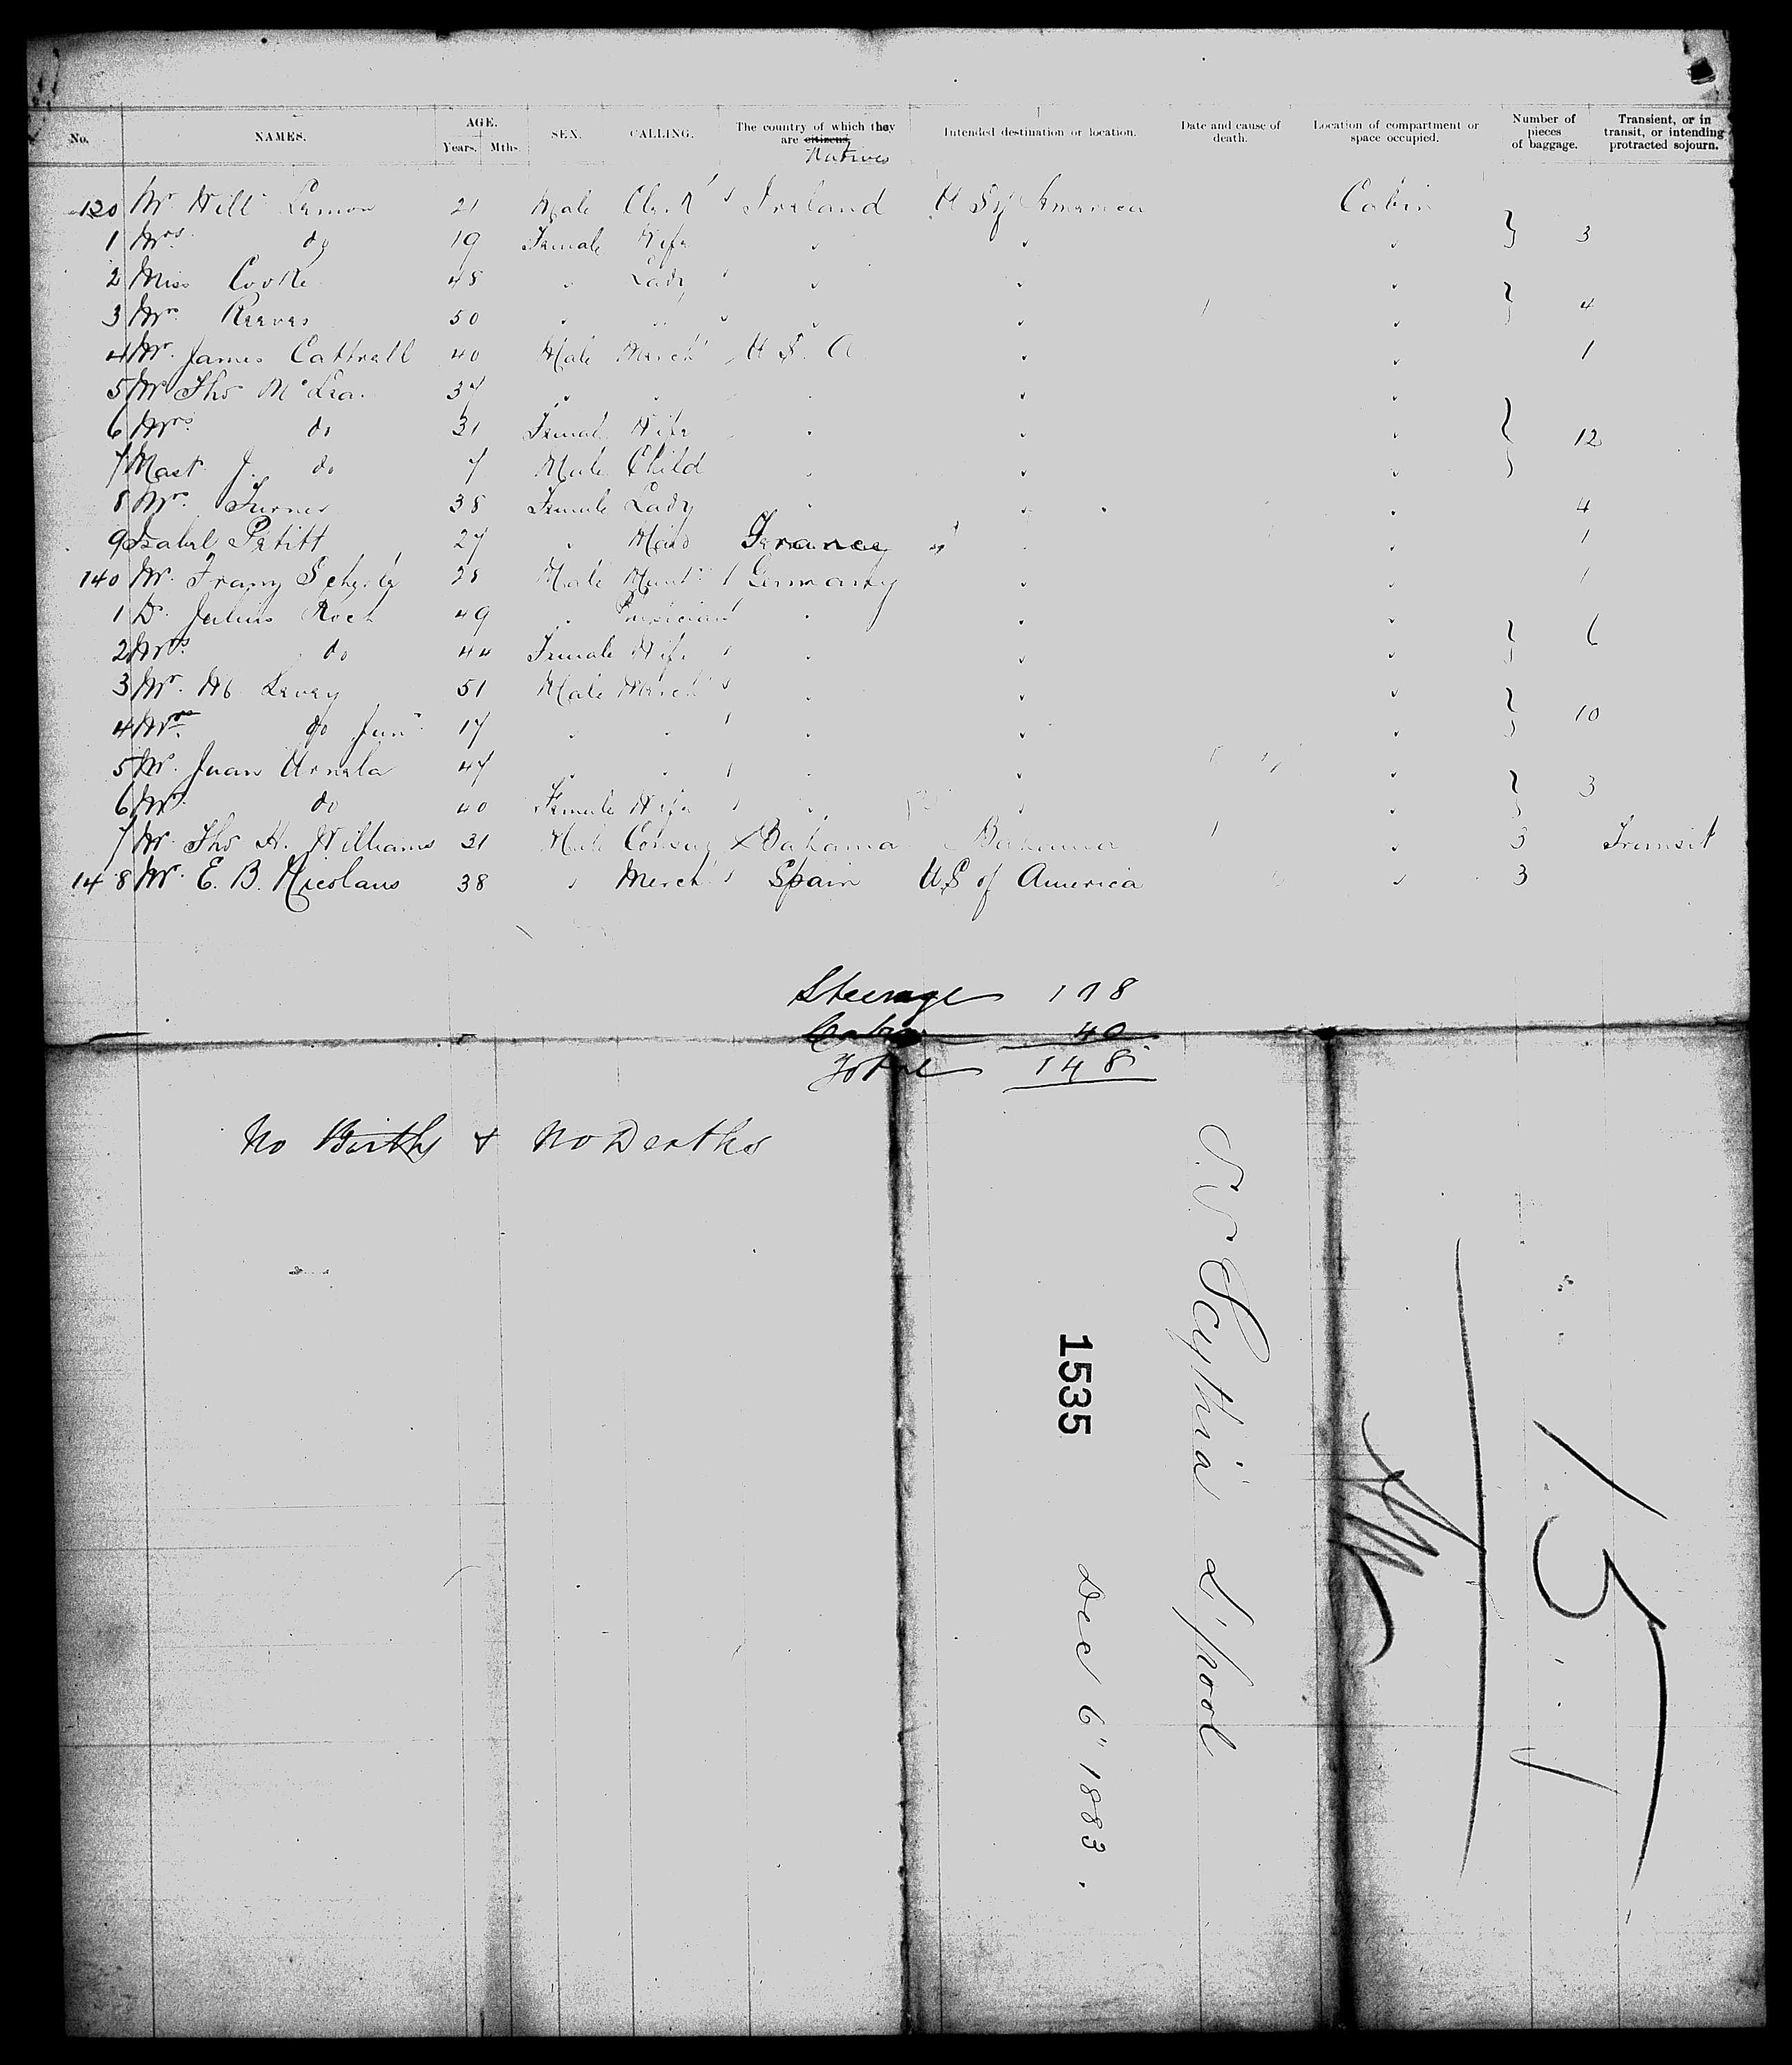 No. NAMES. AGE. Years. Mths. SEX. CALLING. The country of which they are citizens Natives Intended destination or location. Date and cause of death. Location of compartment or space occupied. Number of pieces of baggage. Transient, or in transit, or intending protracted sojourn.
130 Mr. Will Lemon 21 Male Clerk Ireland U S of America Cabin
1 Mrs. do 19 Female Wife " " " 3
2 Miss Cooke 45 " Lady " " "
3 Mrs. Reeves 50 " " " " " 4
4 Mr. James Cattrall 40 Male Merch't U. S. A " " 1
5 Mr Thos McLea 37 " " " " "
6 Mrs. do 31 Female Wife " " " 12
7 Mast. J. do 7 Male Child " " "
8 Mrs. Turner 38 Female Lady " " " 4
9 Isabel Petitt 27 " Maid France " " 1
140 Mr. Franz 28 Male Germany " " 1
1 Dr. Julius Koch 49 " Physician " " "
2 Mrs. do 44 Female Wife " " " 6
3 Mr. M. Levey 51 Male Merch't " " "
4 Mr. do Jun 17 " " " " " 10
5 Mr. Juan 47 " " " " "
6 Mrs. do 40 Female Wife " " " 3
7 Mr. Thos H. Williams 31 Male Bahama Bahama " 3 Transit
148 Mr. E. B. Nicolaus 38 " Merch't Spain US of America " 3
Steerage 108
Cabin 40
Total 148
No Births & No Deaths
S.S. Scythia L'pool
1535 Dec 6" 1883.